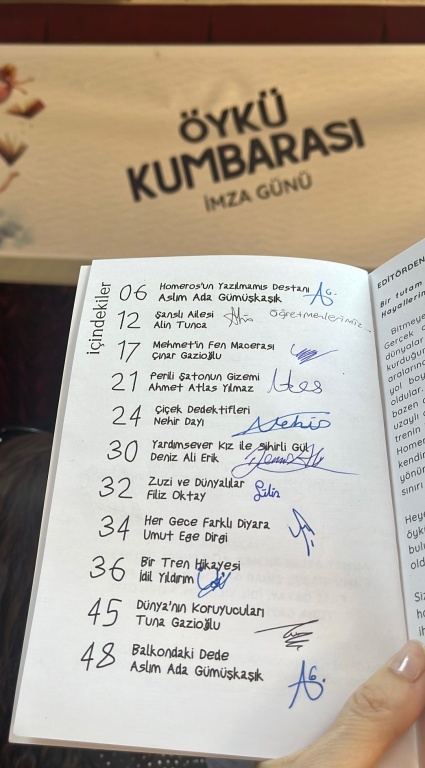 ÖYKÜ
KUMBARASI
İMZA GÜNÜ
içindekiler
06 Homeros'un Yazılmamış Destanı
Aslım Ada Gümüşkaşık
AG.
12 Şanslı Ailesi
Alin Tunca
Alin
Öğretmenlerimiz
17 Mehmet'in Fen Macerası
Çınar Gazioğlu
21 Perili Şatonun Gizemi
Ahmet Atlas Yılmaz
24 Çiçek Dedektifleri
Nehir Dayı
Nehir
30 Yardımsever Kız ile Sihirli Gül
Deniz Ali Erik
32 Zuzi ve Dünyalılar
Filiz Oktay
Filiz
34 Her Gece Farklı Diyara
Umut Ege Dirgi
36 Bir Tren Hikayesi
İdil Yıldırım
45 Dünya'nın Koruyucuları
Tuna Gazioğlu
48 Balkondaki Dede
Aslım Ada Gümüşkaşık
AG.
EDİTÖRDEN
Bir tutam
Hayallerin
Bitmeye
Gerçek
dünyalar
kurduğun
aralarınd
yol boy
oldular.
bazen
uzaylı
trenin
Homer
kendin
yönün
sınırı
Heye
öykü
bulu
old
Siz